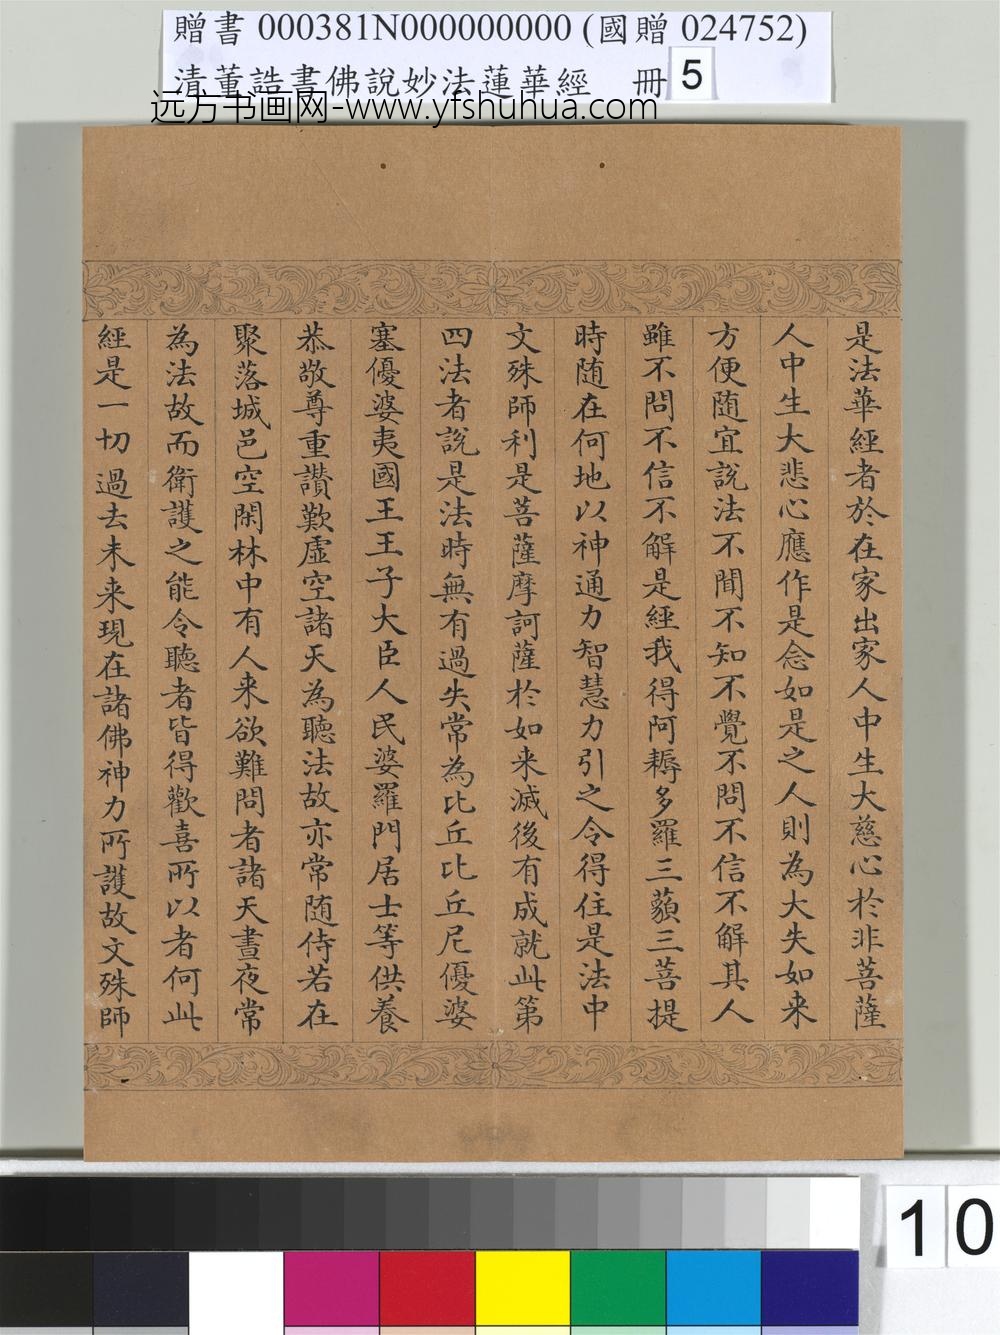 贈書 000381N000000000 (國贈 024752)
清董誥書佛說妙法蓮華經 冊 5
远方书画网-www.yfshuhua.com
是法華經者於在家出家人中生大慈心於非菩薩
人中生大悲心應作是念如是之人則為大失如来
方便随宜說法不聞不知不覺不問不信不解其人
雖不問不信不解是經我得阿耨多羅三藐三菩提
時随在何地以神通力智慧力引之令得住是法中
文殊師利是菩薩摩訶薩於如来滅後有成就此第
四法者說是法時無有過失常為比丘比丘尼優婆
塞優婆夷國王王子大臣人民婆羅門居士等供養
恭敬尊重讚歎虛空諸天為聽法故亦常随侍若在
聚落城邑空閑林中有人来欲難問者諸天晝夜常
為法故而衛護之能令聽者皆得歡喜所以者何此
經是一切過去未来現在諸佛神力所護故文殊師
10